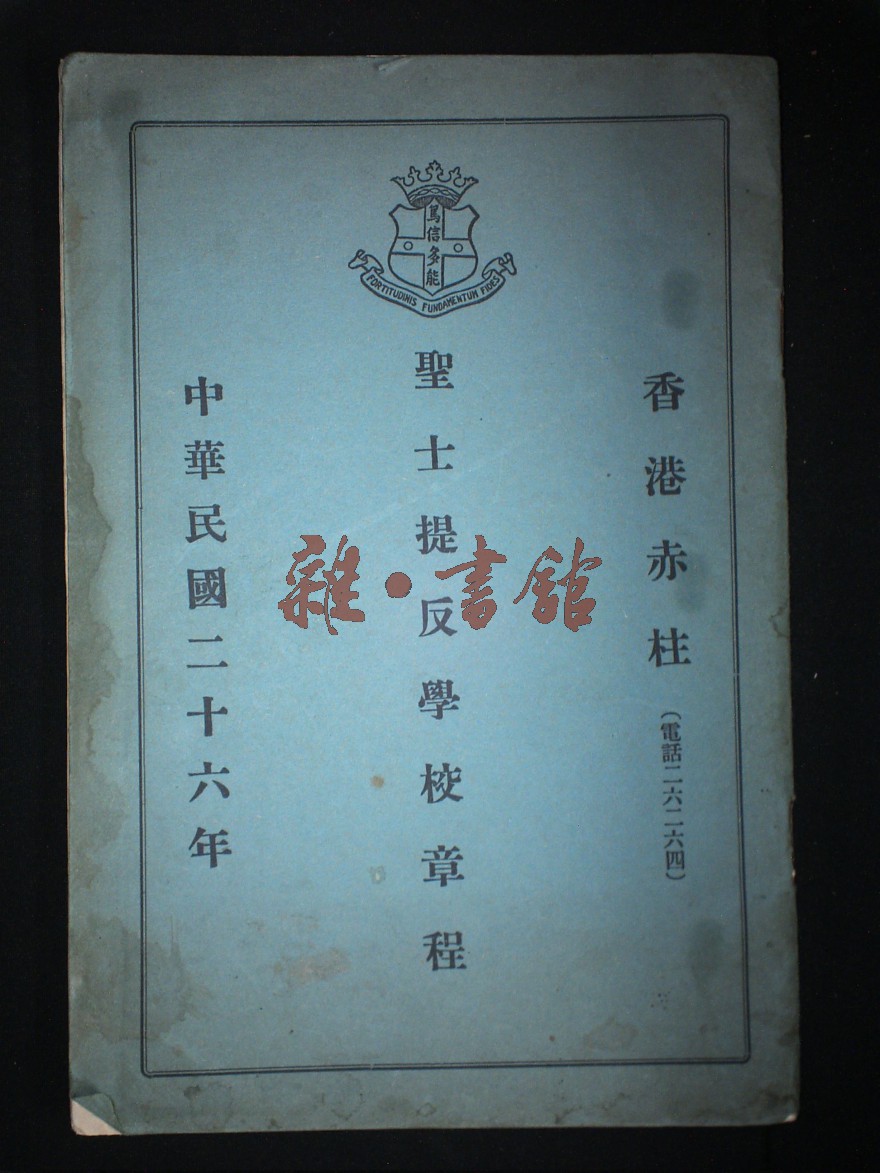 篤信多能
FORTITUDINIS FUNDAMENTUM FIDES
香港赤柱
(電話二六二六四)
聖士提反學校章程
中華民國二十六年
雜·書館